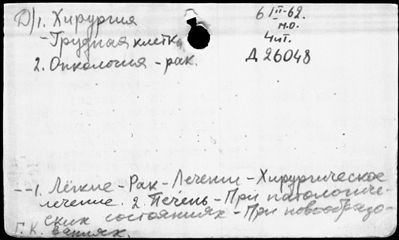 Д)1. Хирургия
-Грудная клетка
2. Онкология - рак.
6 II-62.
м.о.
Чит.
Д 26048
--1. Лёгкие - Рак - Лечение - Хирургическое
лечение. 2. Печень - При патологиче-
ских состояниях - При новообразо-
Г.К. ваниях.